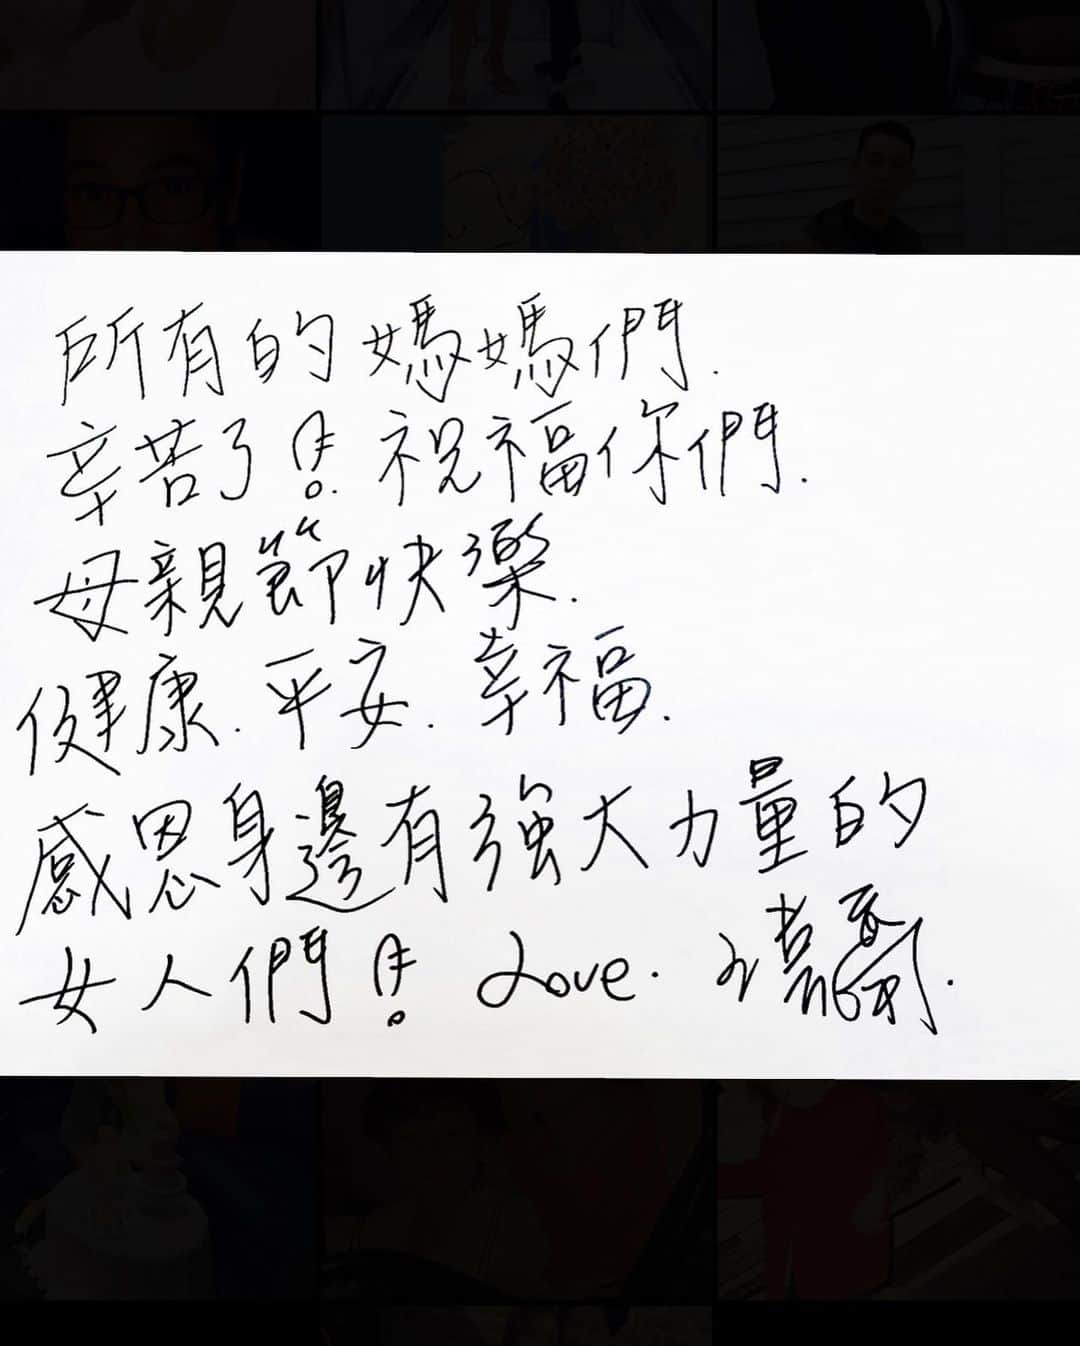 所有的媽媽們.
辛苦了!. 祝福你們.
母親節快樂.
健康. 平安. 幸福.
感恩身邊有強大力量的
女人們! Love.